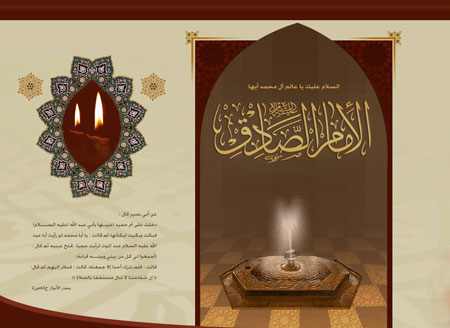 السلام عليك يا عالم آل محمد أيها
الإمام الصادق
عن أبي بصير قال :
دخلت على أم حميد أعزيها بأبي عبد الله (عليه السلام)
فبكت وبكيت لبكائها ثم قالت : يا أبا محمد لو رأيت أبا عبد
الله عليه السلام عند الموت لرأيت عجبا . فتح عينيه ثم قال :
«أجمعوا لي كل من بيني وبينه قرابة»
قالت : فلم نترك أحدا إلا جمعناه قالت : فنظر إليهم ثم قال
« إن شفاعتنا لا تنال مستخفا بالصلاة » .
بحار الأنوار